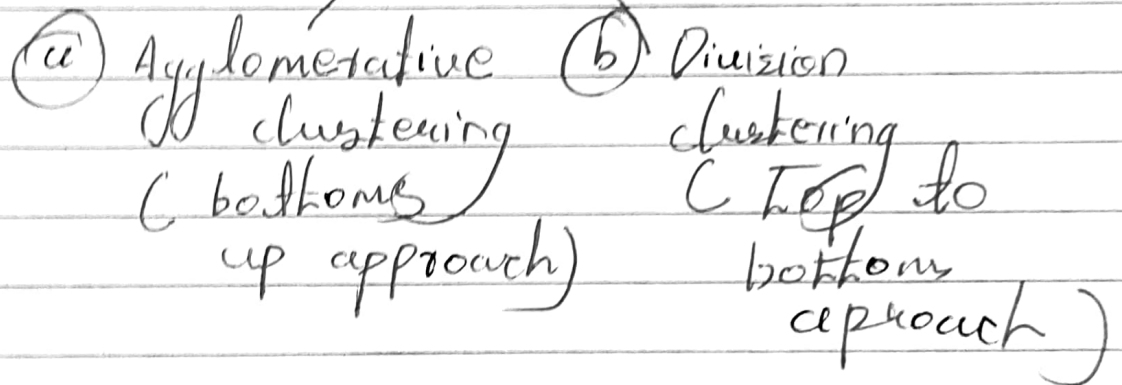 (a) Agglomerative
clustering
(bottoms
up approach)
(b) Division
clustering
(Top to
bottom
aproach)